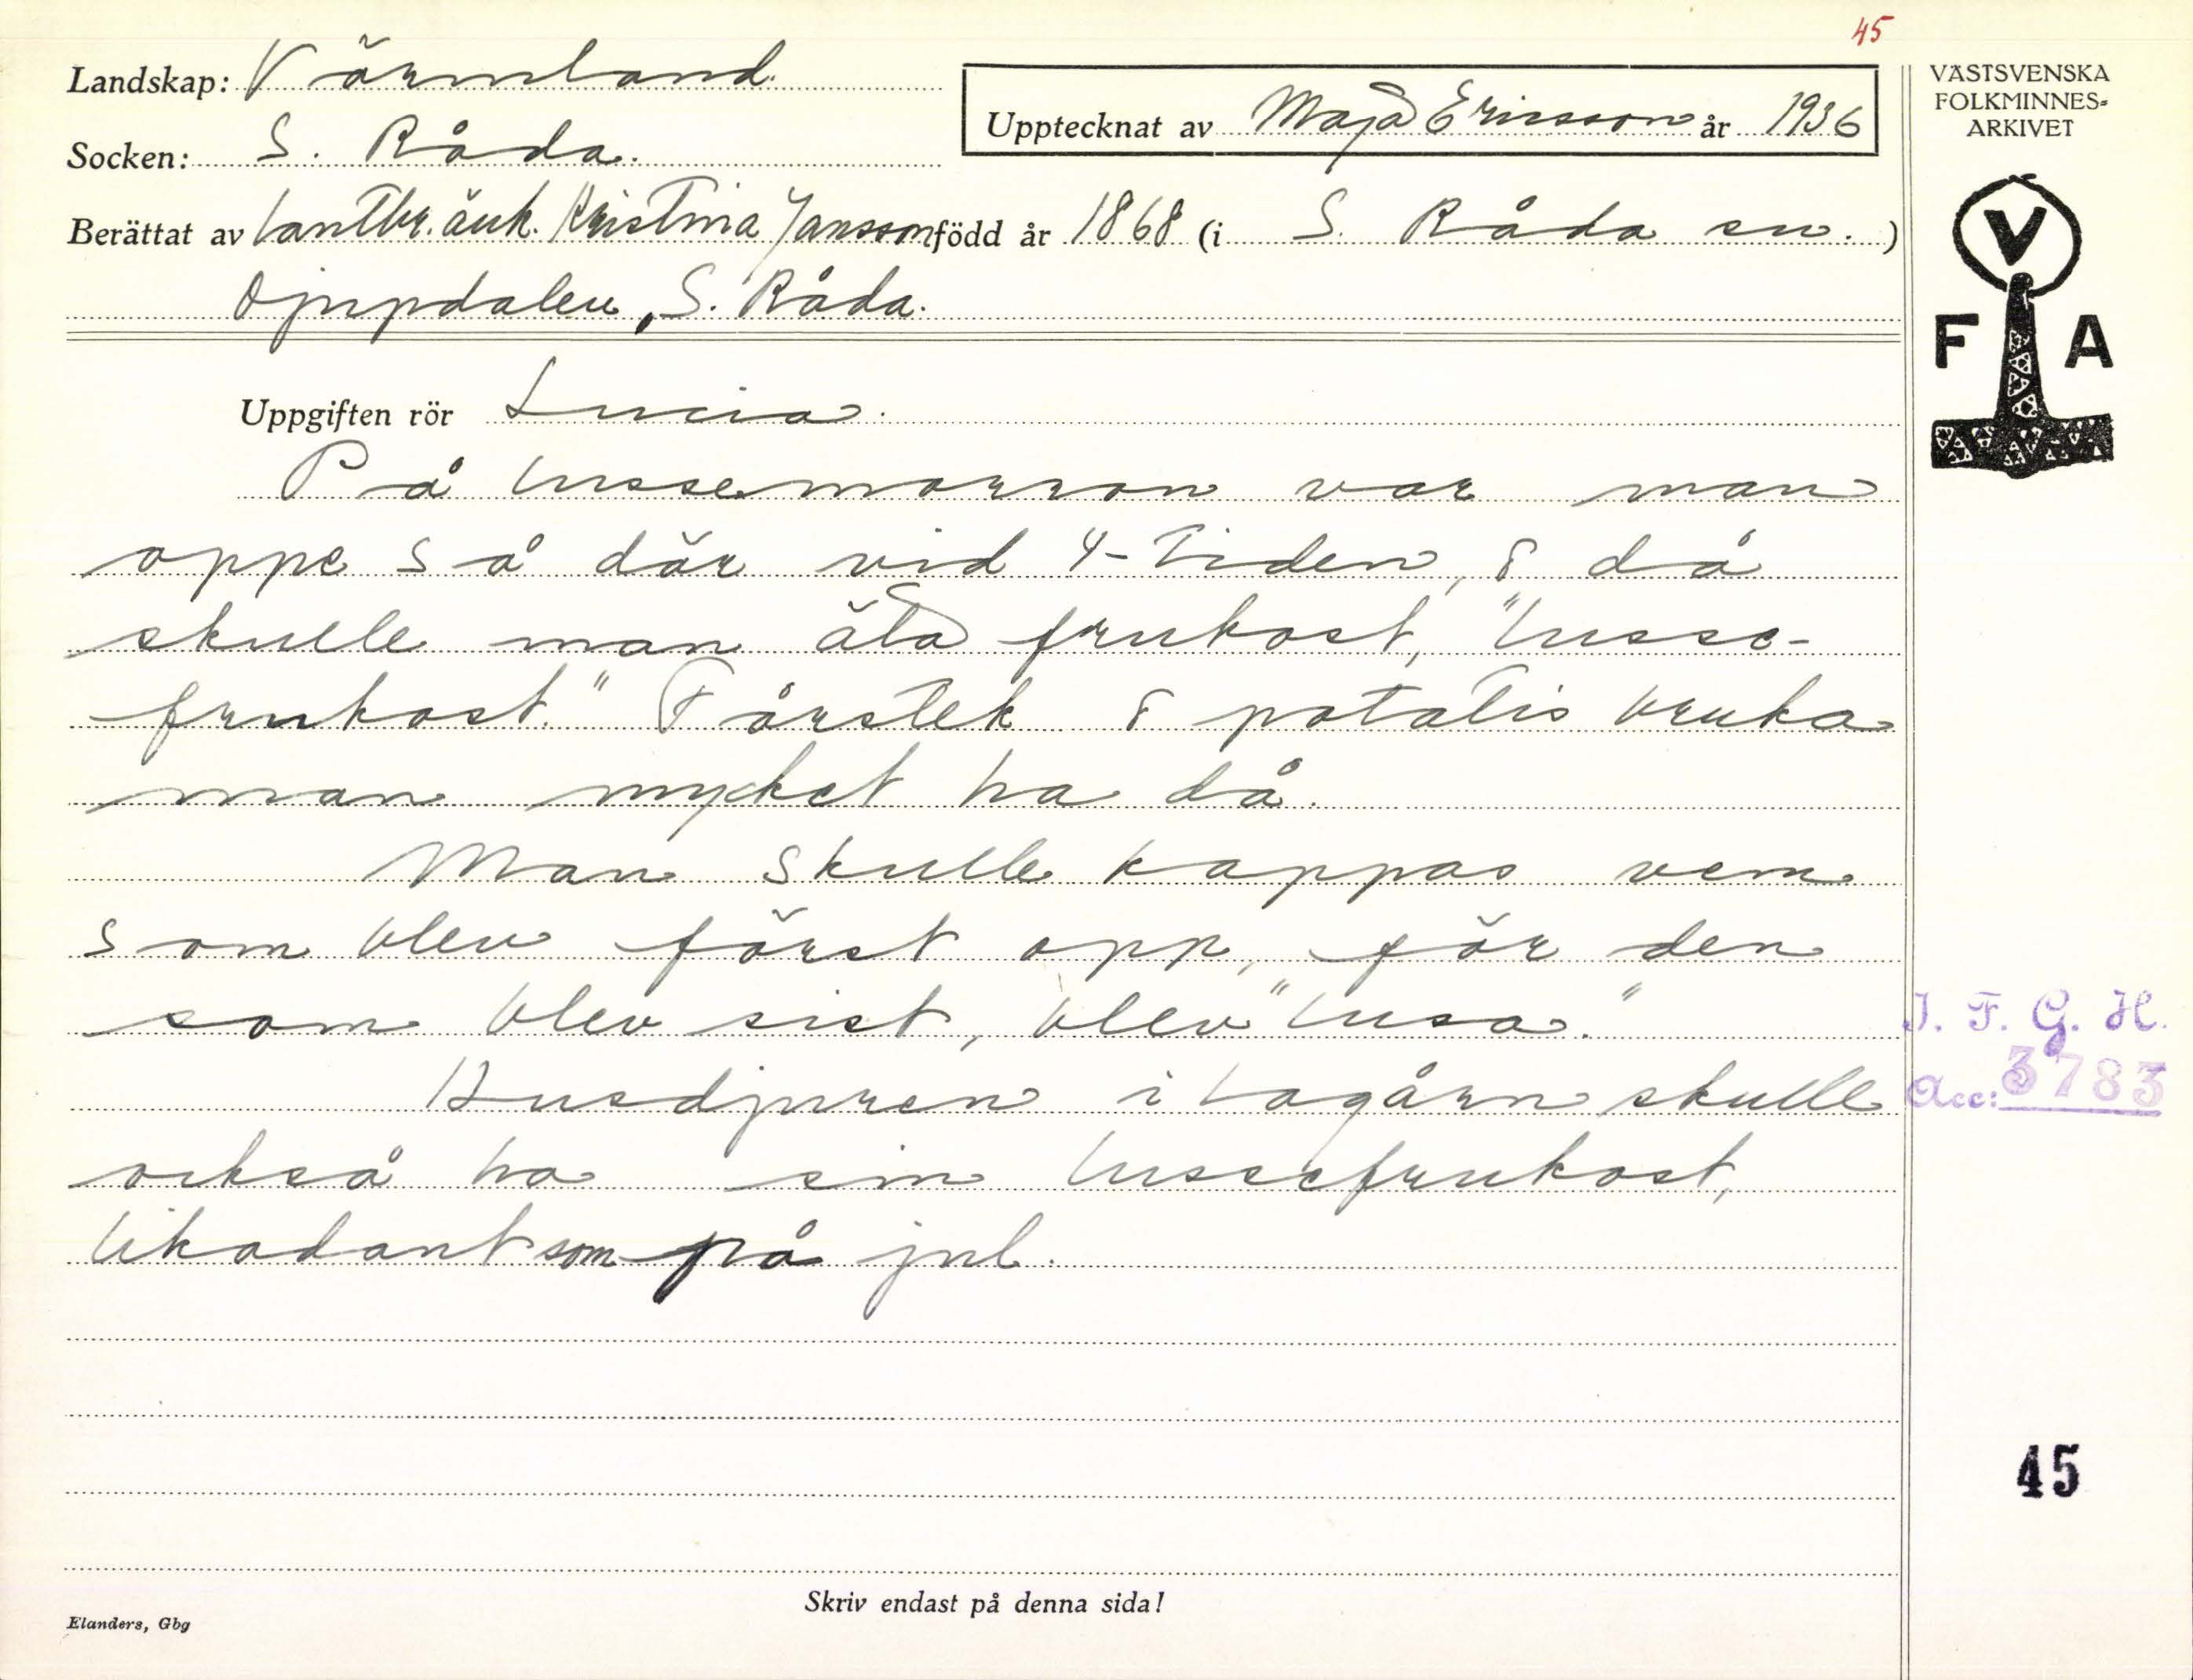 45
Landskap: Värmland.
Socken: S. Råda.
Upptecknat av Maja Ericsson år 1936
Berättat av Lantbr. änk. Kristina Jansson född år 1868 (i S. Råda sn.)
Djupdalen, S. Råda.
Uppgiften rör Lucia.
På lussemorron var man
oppe så där vid 4-tiden, & då
skulle man äta frukost, "lusse-
frukost." Fårstek & potatis bruka
man mycket ha då.
Man skulle kappas vem
som blev först opp, för den
som blev sist, blev "lusa."
Husdjuren i lagårn skulle
också ha sin lussefrukost,
likadant som på jul.
Skriv endast på denna sida!
Elanders, Gbg
VÄSTSVENSKA
FOLKMINNES-
ARKIVET
V
F A
I. F. G. H.
Acc: 3783
45